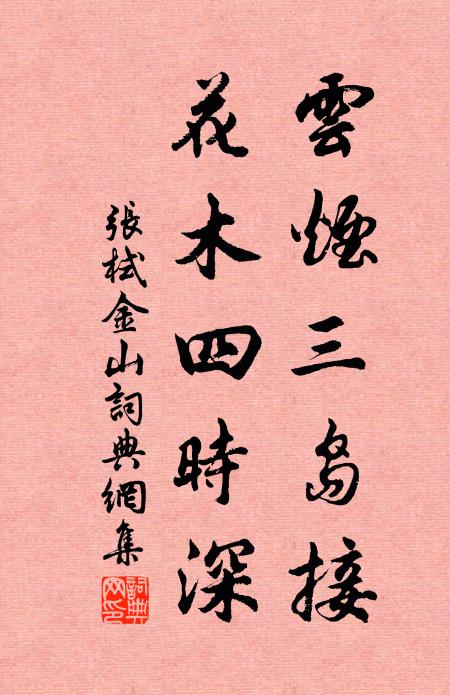 雲煙三島接
花木四時深
張栻金山詞典網集
詞典網印